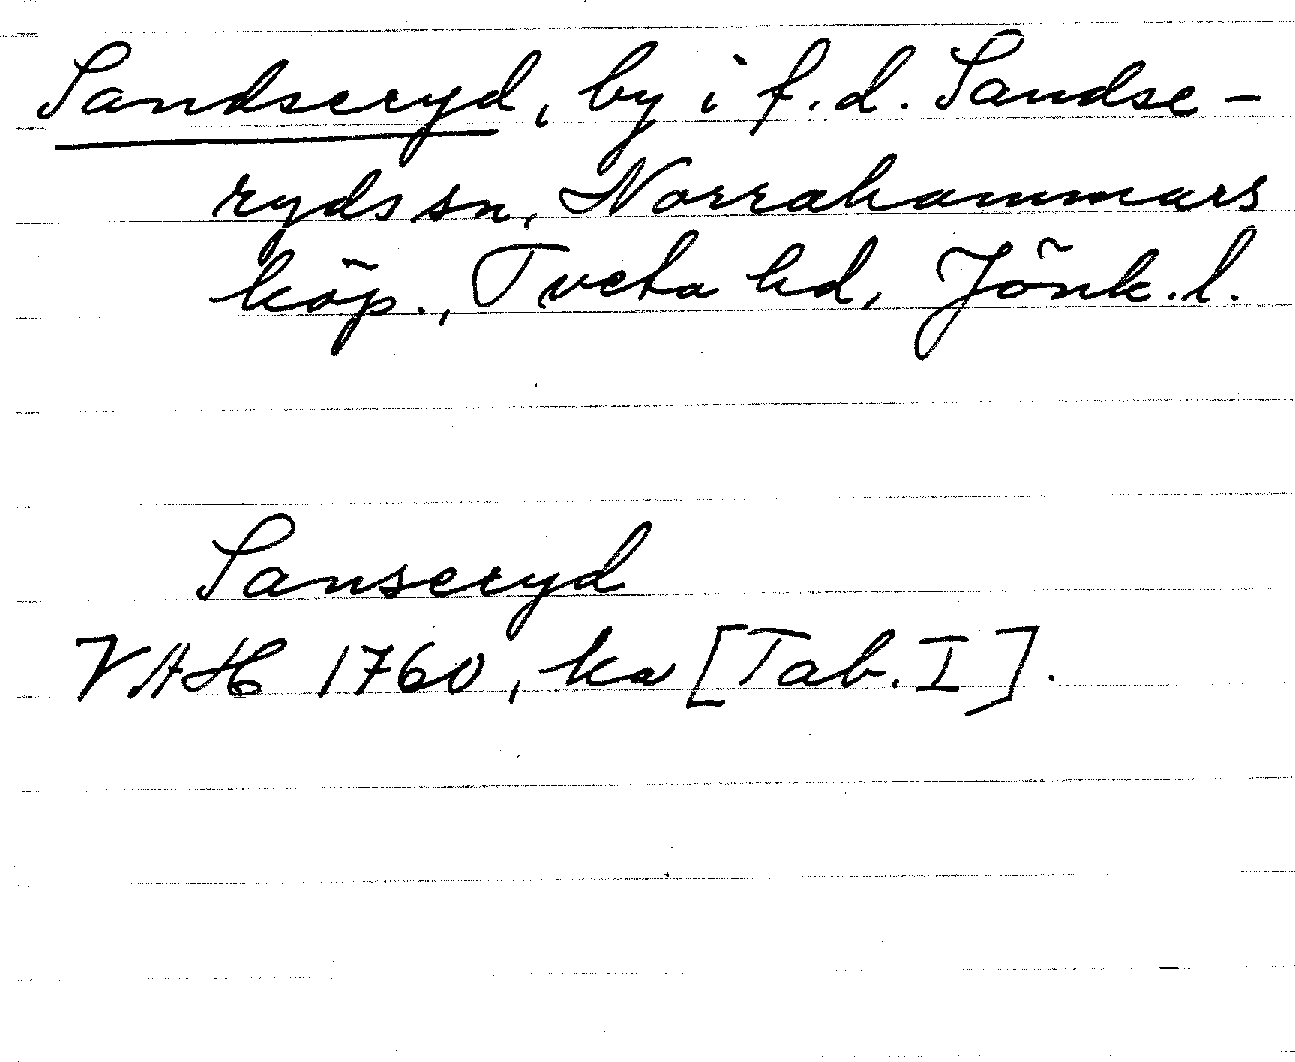 Sandseryd, by i f.d. Sandse-
ryds sn, Norrahammars
köp., Tveta hd, Jönk. l.
Sanseryd
VAH 1760, ka [Tab. I].